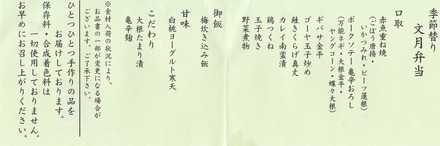 季節替り
文月弁当
口取
赤魚重ね焼
（ごぼう唐揚・
いかつや・ビーツ蓮根）
ポークソテー亀辛おろし
（万能ネギ・大根金平・
ヤングコーン・蝶々大根）
ギバサ金平
ゴーヤ玉子炒め
鮭きくらげ真丈
カレイ南蛮漬
鶏つくね
玉子焼き
野菜煮物
御飯
梅炊き込み飯
甘味
白桃ヨーグルト寒天
こだわり
大根たまり漬
亀辛麹
※素材入荷の状況により、
お品書の一部が変更になる場合が
ございます。ご了承下さい。
ひとつひとつ手作りの品を
お届けしております。
保存料・合成着色料は
一切使用しておりません。
お早めにお召し上がりください。